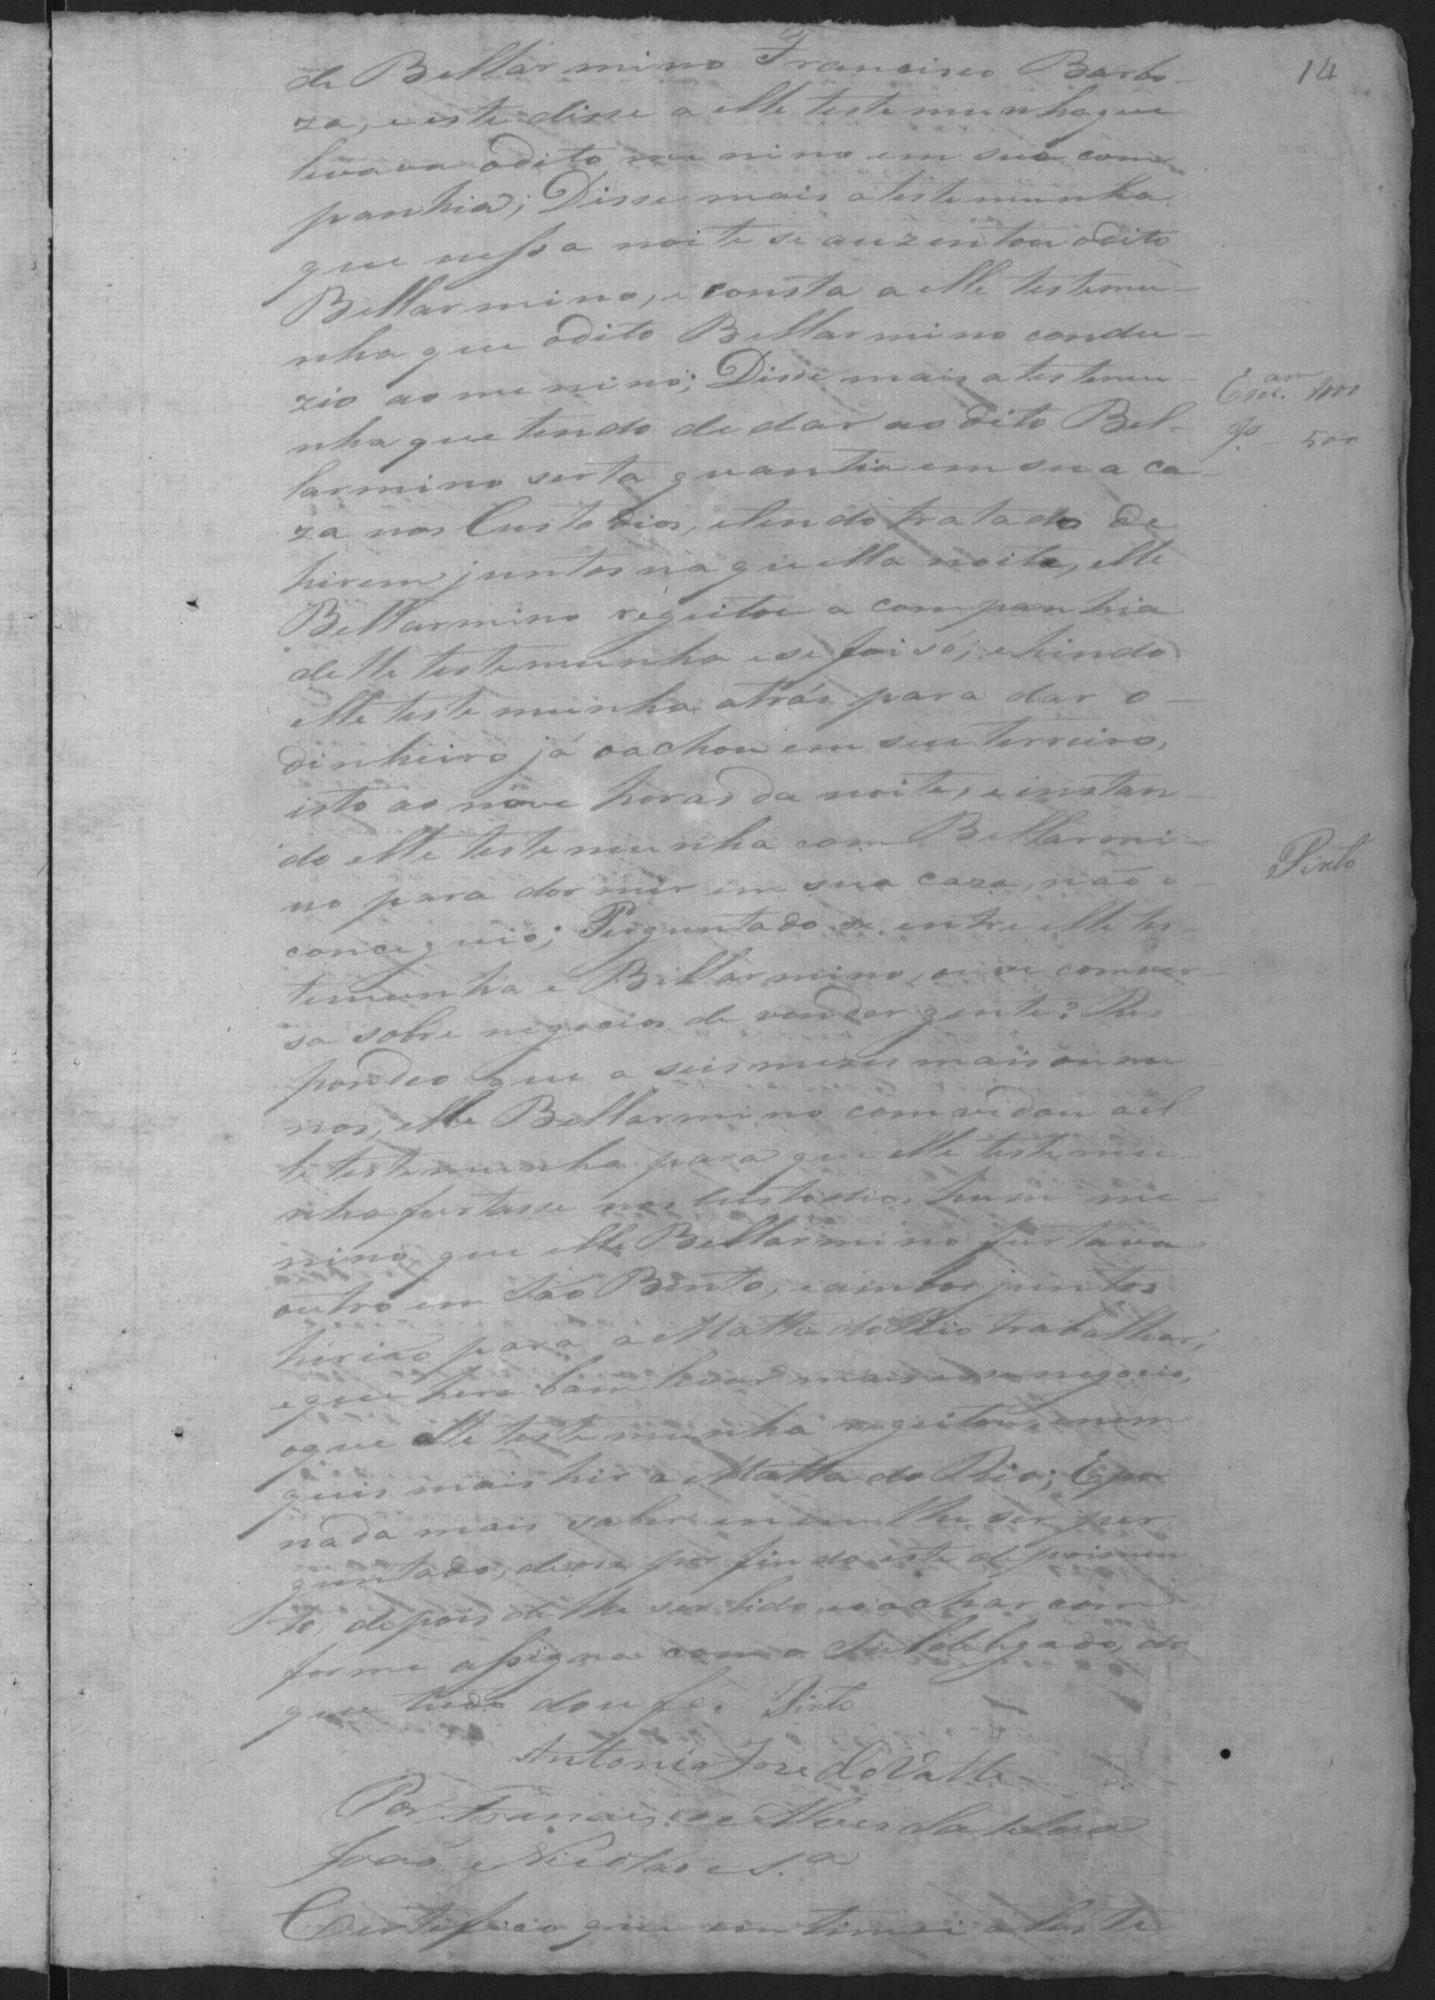 14
de Bellarmino Francisco Barbo-
za, e este disse a elle testemunha que
levava o dito menino em sua com-
panhia; Disse mais a testemunha
que nessa noite se auzentou o dito
Bellarmino, e consta a elle testemu-
nha que o dito Bellarmino condu-
zio ao menino; Disse mais a testemu-
nha que tendo de dar ao dito Bel-
larmino serta quantia em sua ca-
za nos Custodios, e tendo tratado de
hirem juntos naquella noite, elle
Bellarmino regeitou a companhia
delle testemunha e se foi só; e hindo
elle testemunha atrás para dar o-
dinheiro já o achou em seu terreiro,
isto as nove horas da noite, e instan-
do elle testemunha com Bellarmi-
no para dormir em sua caza, não o-
conceguio; Perguntado se entre elle tes-
temunha e Bellarmino, ouve conver-
sa sobre negocios de vender gente? Res-
pondeo que a seis mezes mais ou me-
nos, elle Bellarmino comvidou a el-
le testemunha para que elle testemu-
nha furtasse nos Custodios hum me-
nino que elle Bellarmino furtava
outro em São Bento, e ambos juntos
hirião para a Matta do Rio trabalhar,
e que hera bom levar mais esse negocio,
o que elle testemunha regeitou, e nem
quis mais hir a Matta do Rio; E por
nada mais saber e nem lhe ser per-
guntado, deose por findo este depoimen-
to, depois de lhe ser lido, e o achar com-
forme assigna com o Subdelegado, do
que tudo dou fé. Pinto
Antonio Jose do Valle
Por Francisco Alves da
João Nicoláo e S.ª
Certifico que intimei a teste
Escr.am 1000
Jo. - 500
Pinto